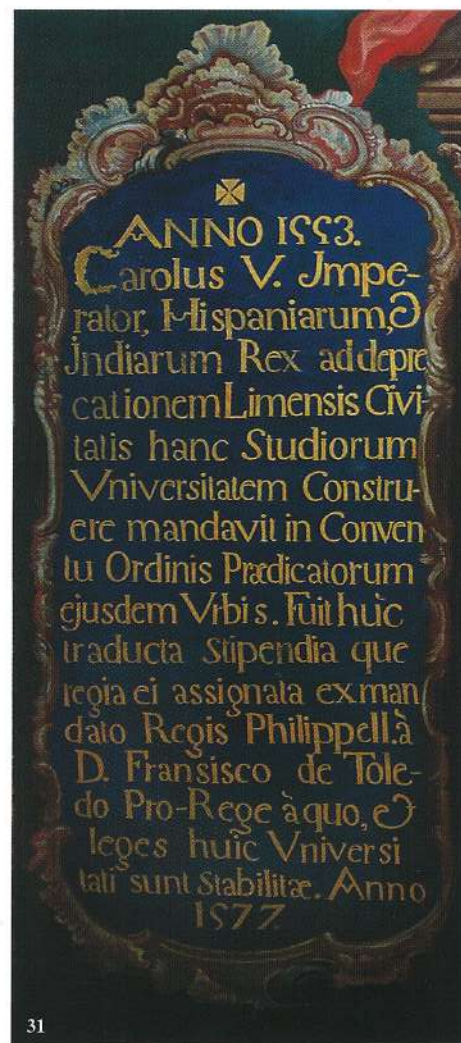 ✠
ANNO 1553.
Carolus V. Jmpe-
rator, Hispaniarum, &
Jndiarum Rex ad depre
cationem Limensis Civi-
tatis hanc Studiorum
Vniversitatem Constru-
ere mandavit in Conven
tu Ordinis Prædicatorum
ejusdem Vrbis. Fuit huic
traducta Stipendia que
regia ei assignata ex man
dato Regis Philippe II. à
D. Fransisco de Tole-
do Pro-Rege à quo, &
leges huic Vniversi
tati sunt Stabilitæ. Anno
1577.
31